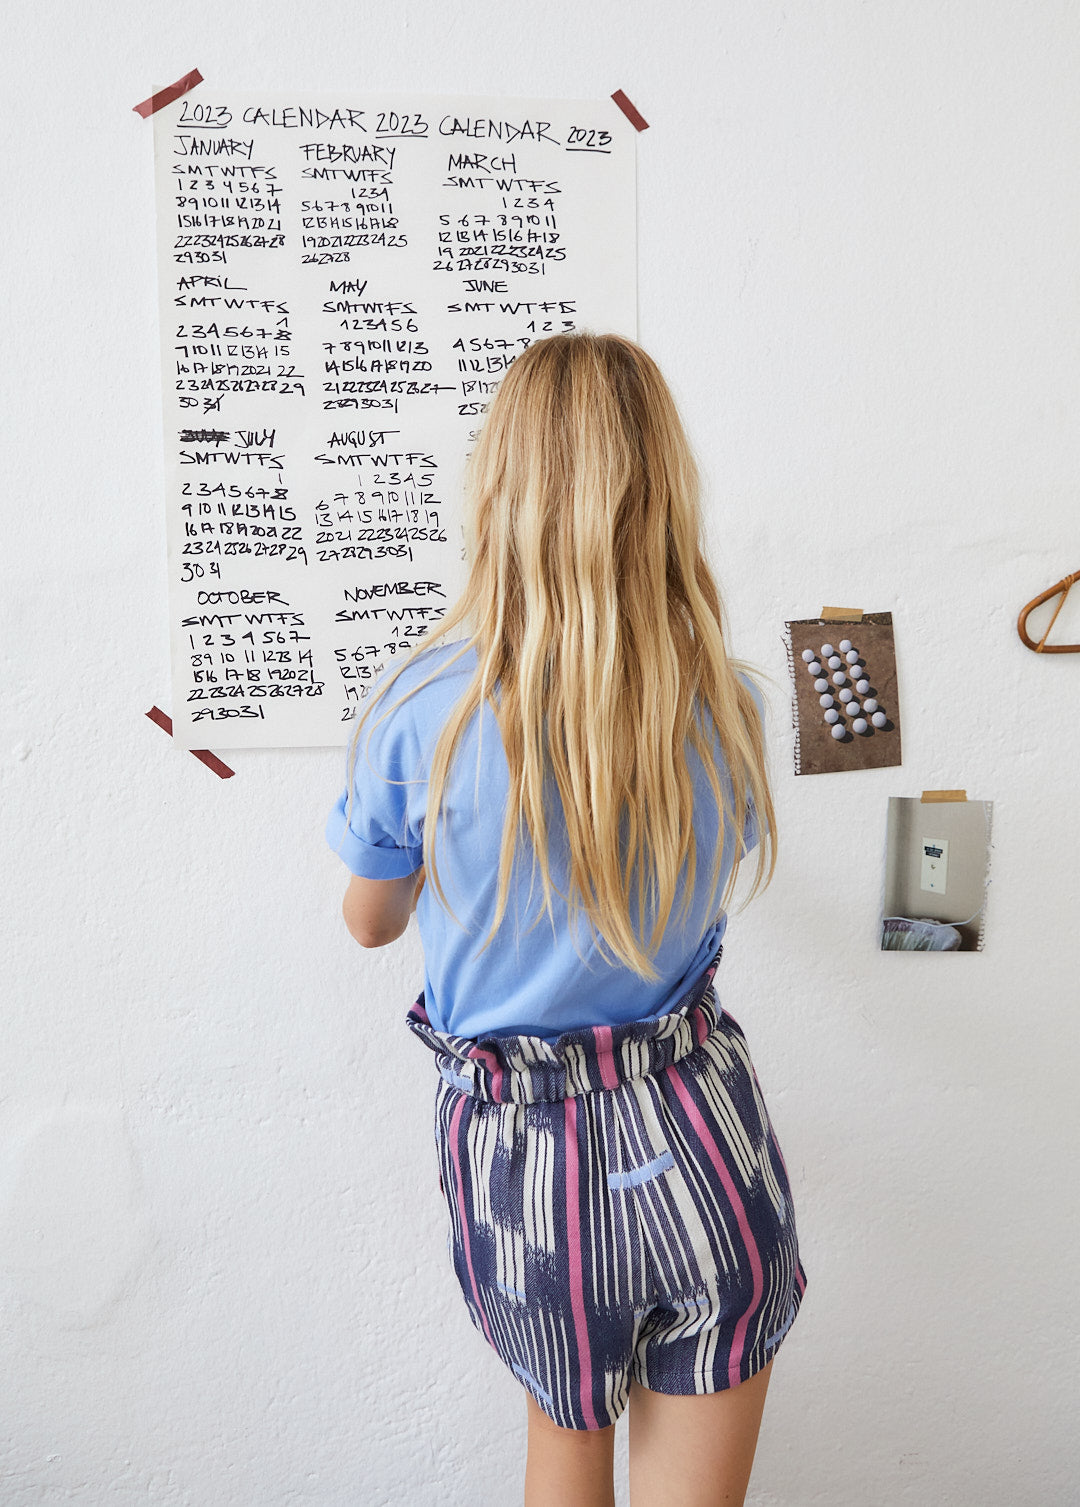 2023 CALENDAR 2023 CALENDAR 2023
JANUARY
SMTWTFS
1 2 3 4 5 6 7
8 9 10 11 12 13 14
15 16 17 18 19 20 21
22 23 24 25 26 27 28
29 30 31
FEBRUARY
SMTWTFS
1 2 3 4
5 6 7 8 9 10 11
12 13 14 15 16 17 18
19 20 21 22 23 24 25
26 27 28
MARCH
SMTWTFS
1 2 3 4
5 6 7 8 9 10 11
12 13 14 15 16 17 18
19 20 21 22 23 24 25
26 27 28 29 30 31
APRIL
SMTWTFS
1
2 3 4 5 6 7 8
9 10 11 12 13 14 15
16 17 18 19 20 21 22
23 24 25 26 27 28 29
30 31
MAY
SMTWTFS
1 2 3 4 5 6
7 8 9 10 11 12 13
14 15 16 17 18 19 20
21 22 23 24 25 26 27
28 29 30 31
JUNE
SMTWTFS
1 2 3
4 5 6 7 8
11 12 13 14
18 19
25
JULY
SMTWTFS
1
2 3 4 5 6 7 8
9 10 11 12 13 14 15
16 17 18 19 20 21 22
23 24 25 26 27 28 29
30 31
AUGUST
SMTWTFS
1 2 3 4 5
6 7 8 9 10 11 12
13 14 15 16 17 18 19
20 21 22 23 24 25 26
27 28 29 30 31
OCTOBER
SMTWTFS
1 2 3 4 5 6 7
8 9 10 11 12 13 14
15 16 17 18 19 20 21
22 23 24 25 26 27 28
29 30 31
NOVEMBER
SMTWTFS
1 2 3
5 6 7 8 9
12 13
19